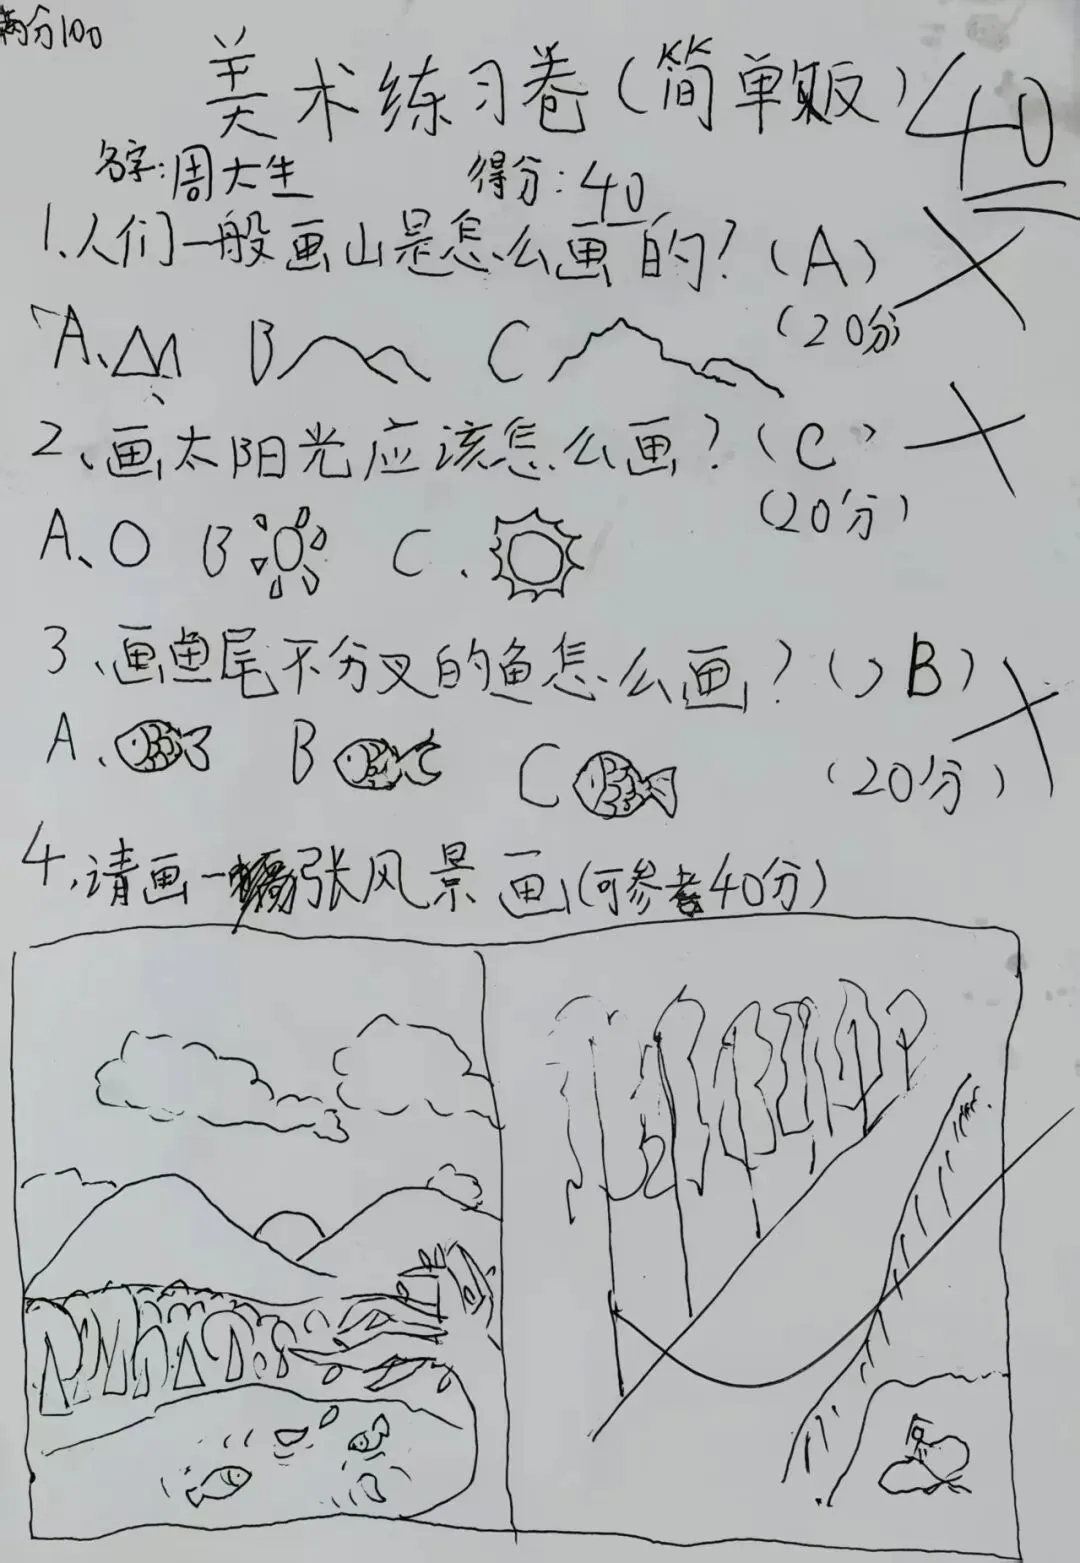 满分100
美术练习卷(简单版) 40
名字:周大生 得分:40
1.人们一般画山是怎么画的?(A)
(20分)
A、 B C
2、画太阳光应该怎么画?(C)
(20分)
A、 B C.
3、画鱼尾不分叉的鱼怎么画?( )B)
A. B C (20分)
4.请画一张风景画(可参考40分)